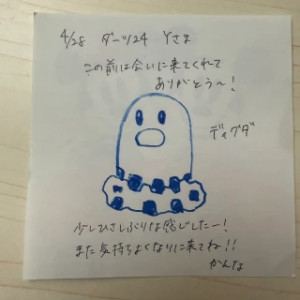 4/28 ダーツ24 Yさま
この前は会いに来てくれて
ありがとう〜!
ディグダ
少しひさしぶりな感じしたー!
また気持ちよくなりに来てね!!
かんな